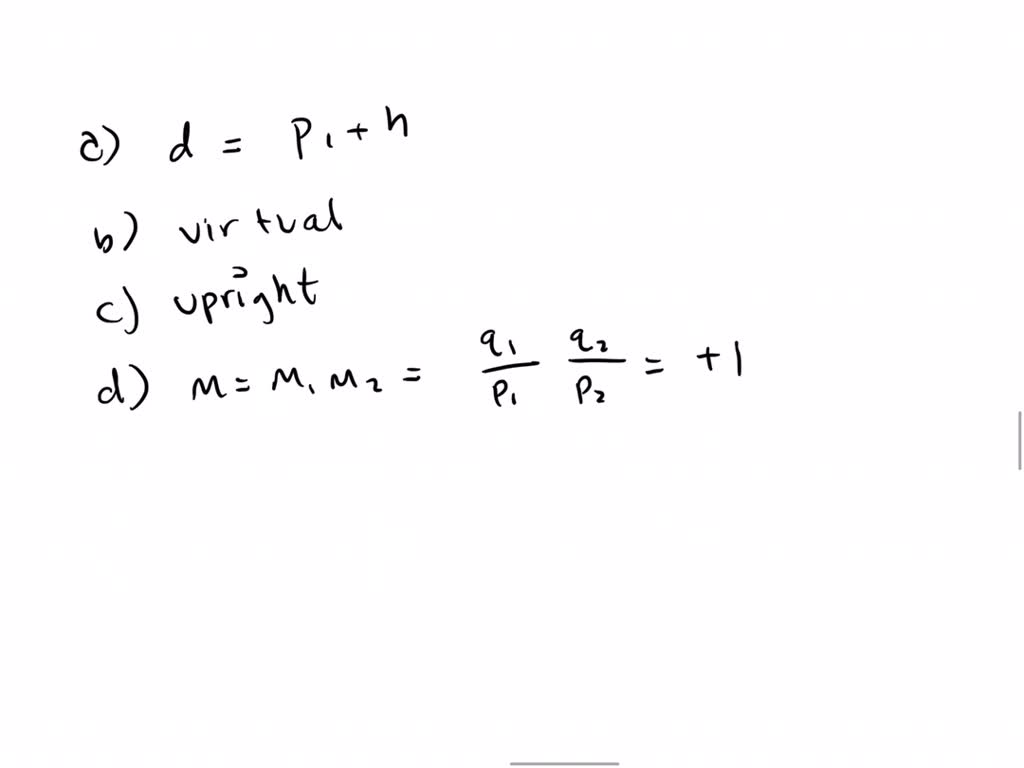 a) d = P₁ + h
b) virtual
c) upright
d) M = M₁ M₂ = q₁/P₁ q₂/P₂ = +1